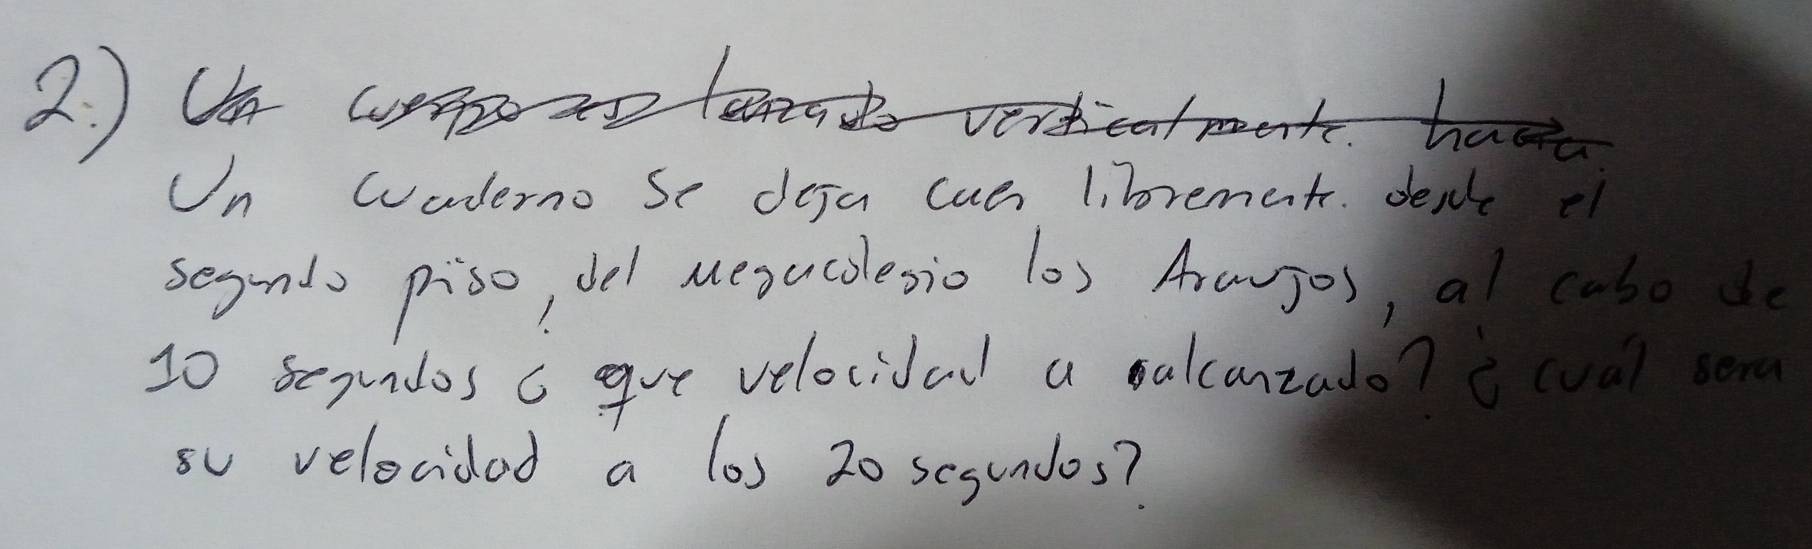 2.) Un cuerpo es lanzado verticalmente. hacia
Un cuaderno se deja caer libremente. desde el
segundo piso, del megacolegio los Araujos, al cabo de
10 segundos ¿ que velocidad a alcanzado? ¿ cuál sera
su velocidad a los 20 segundos?